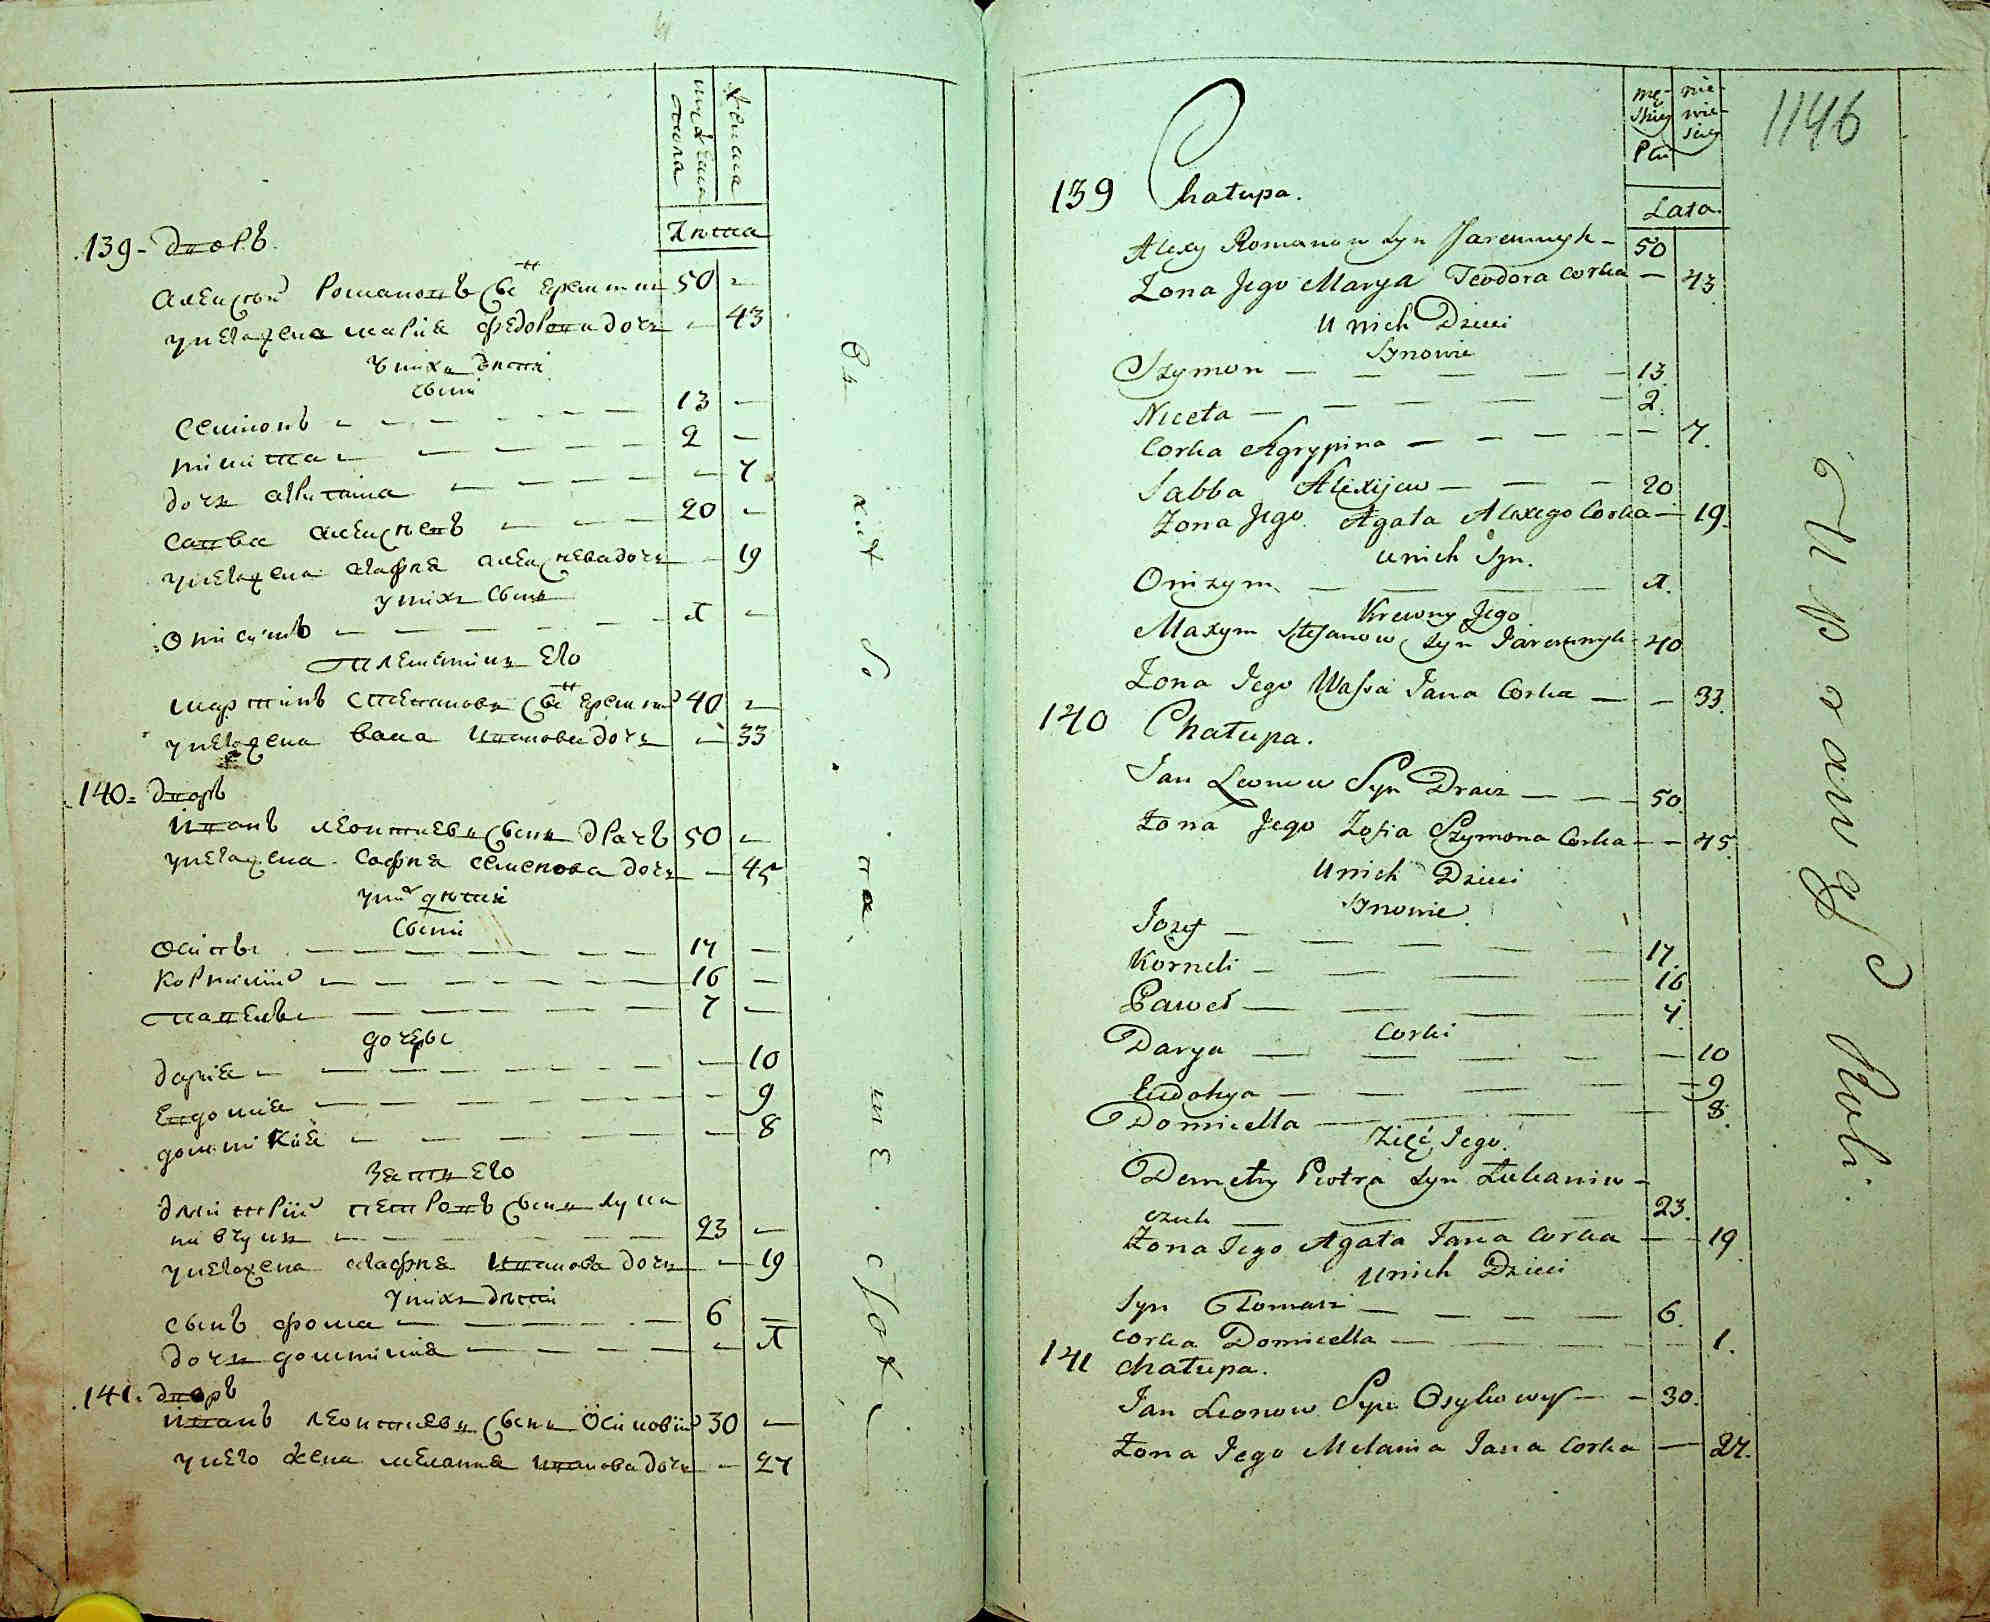 мужеска пола
женска
Лѣта
139 - дворъ
Алексѣй Романовъ снъ Еремчи 50 —
у него жена Мария Федорова дочь — 43
у нихъ дѣти
сыни
Семионъ — 13 —
Никита — 2 —
дочь Агрипина — 7
Савва Алексѣевъ — 20 —
у него жена Агафия Алексѣева дочь — 19
у нихъ сынъ
Онисимъ — 1 —
племенникъ его
Мартинъ Степановъ снъ 40 —
у него жена Васа Иванова дочь — 33
140 = дворъ
Иванъ Леонтиевъ сынъ Драчъ 50 —
у него жена София Семенова дочь — 45
у них дѣти
сыни
Осипъ — 17 —
Корнилий — 16 —
Павелъ — 7 —
дочеры
Дария — 10
Евдокия — 9
Домникия — 8
Зять его
Димитрий Петровъ сынъ Лука
нивчукъ — 23 —
у него жена Агафия Иванова дочь — 19
у нихъ дѣти
сынъ Фома — 6 —
дочь Домникия — 1
141. дворъ
Иванъ Леонтиевъ сынъ Осиковий 30 —
у него жена Мелания Иванова дочь — 27
1146
mę-
skiey
Płci
nie-
wie-
sciey
Lata.
139 Chałupa.
Alexy Romanow Syn Jaremczyk — 50
Zona Jego Marya Teodora Corka — 43
U nich Dzieci
Synowie
Szymon — 13.
Niceta — 2.
Corka Agrypina — 7.
Sabba Alexijew — 20
Zona Jego Agata Alexego Corka — 19.
U nich Syn.
Onizym — 1.
Krewny Jego
Maxym Stefanow Syn Jaremczyk 40
Zona Jego Wassa Jana Corka — 33.
140 Chałupa.
Jan Leonow Syn Dracz — 50.
Zona Jego Zofia Szymona Corka — 45.
U nich Dzieci
Synowie
Jozef — 17.
Korneli — 16
Paweł — 7.
Corki
Darya — 10
Eudokya — 9
Domicella — 8.
Zięć Jego.
Demetry Piotra Syn Łukaniw-
czuk — 23.
Zona Jego Agata Jana Corka — 19.
U nich Dzieci
Syn Tomasz — 6.
Corka Domicella — 1.
141 Chałupa.
Jan Leonow Syn Osykowy — 30.
Zona Jego Melania Jana Corka — 27.